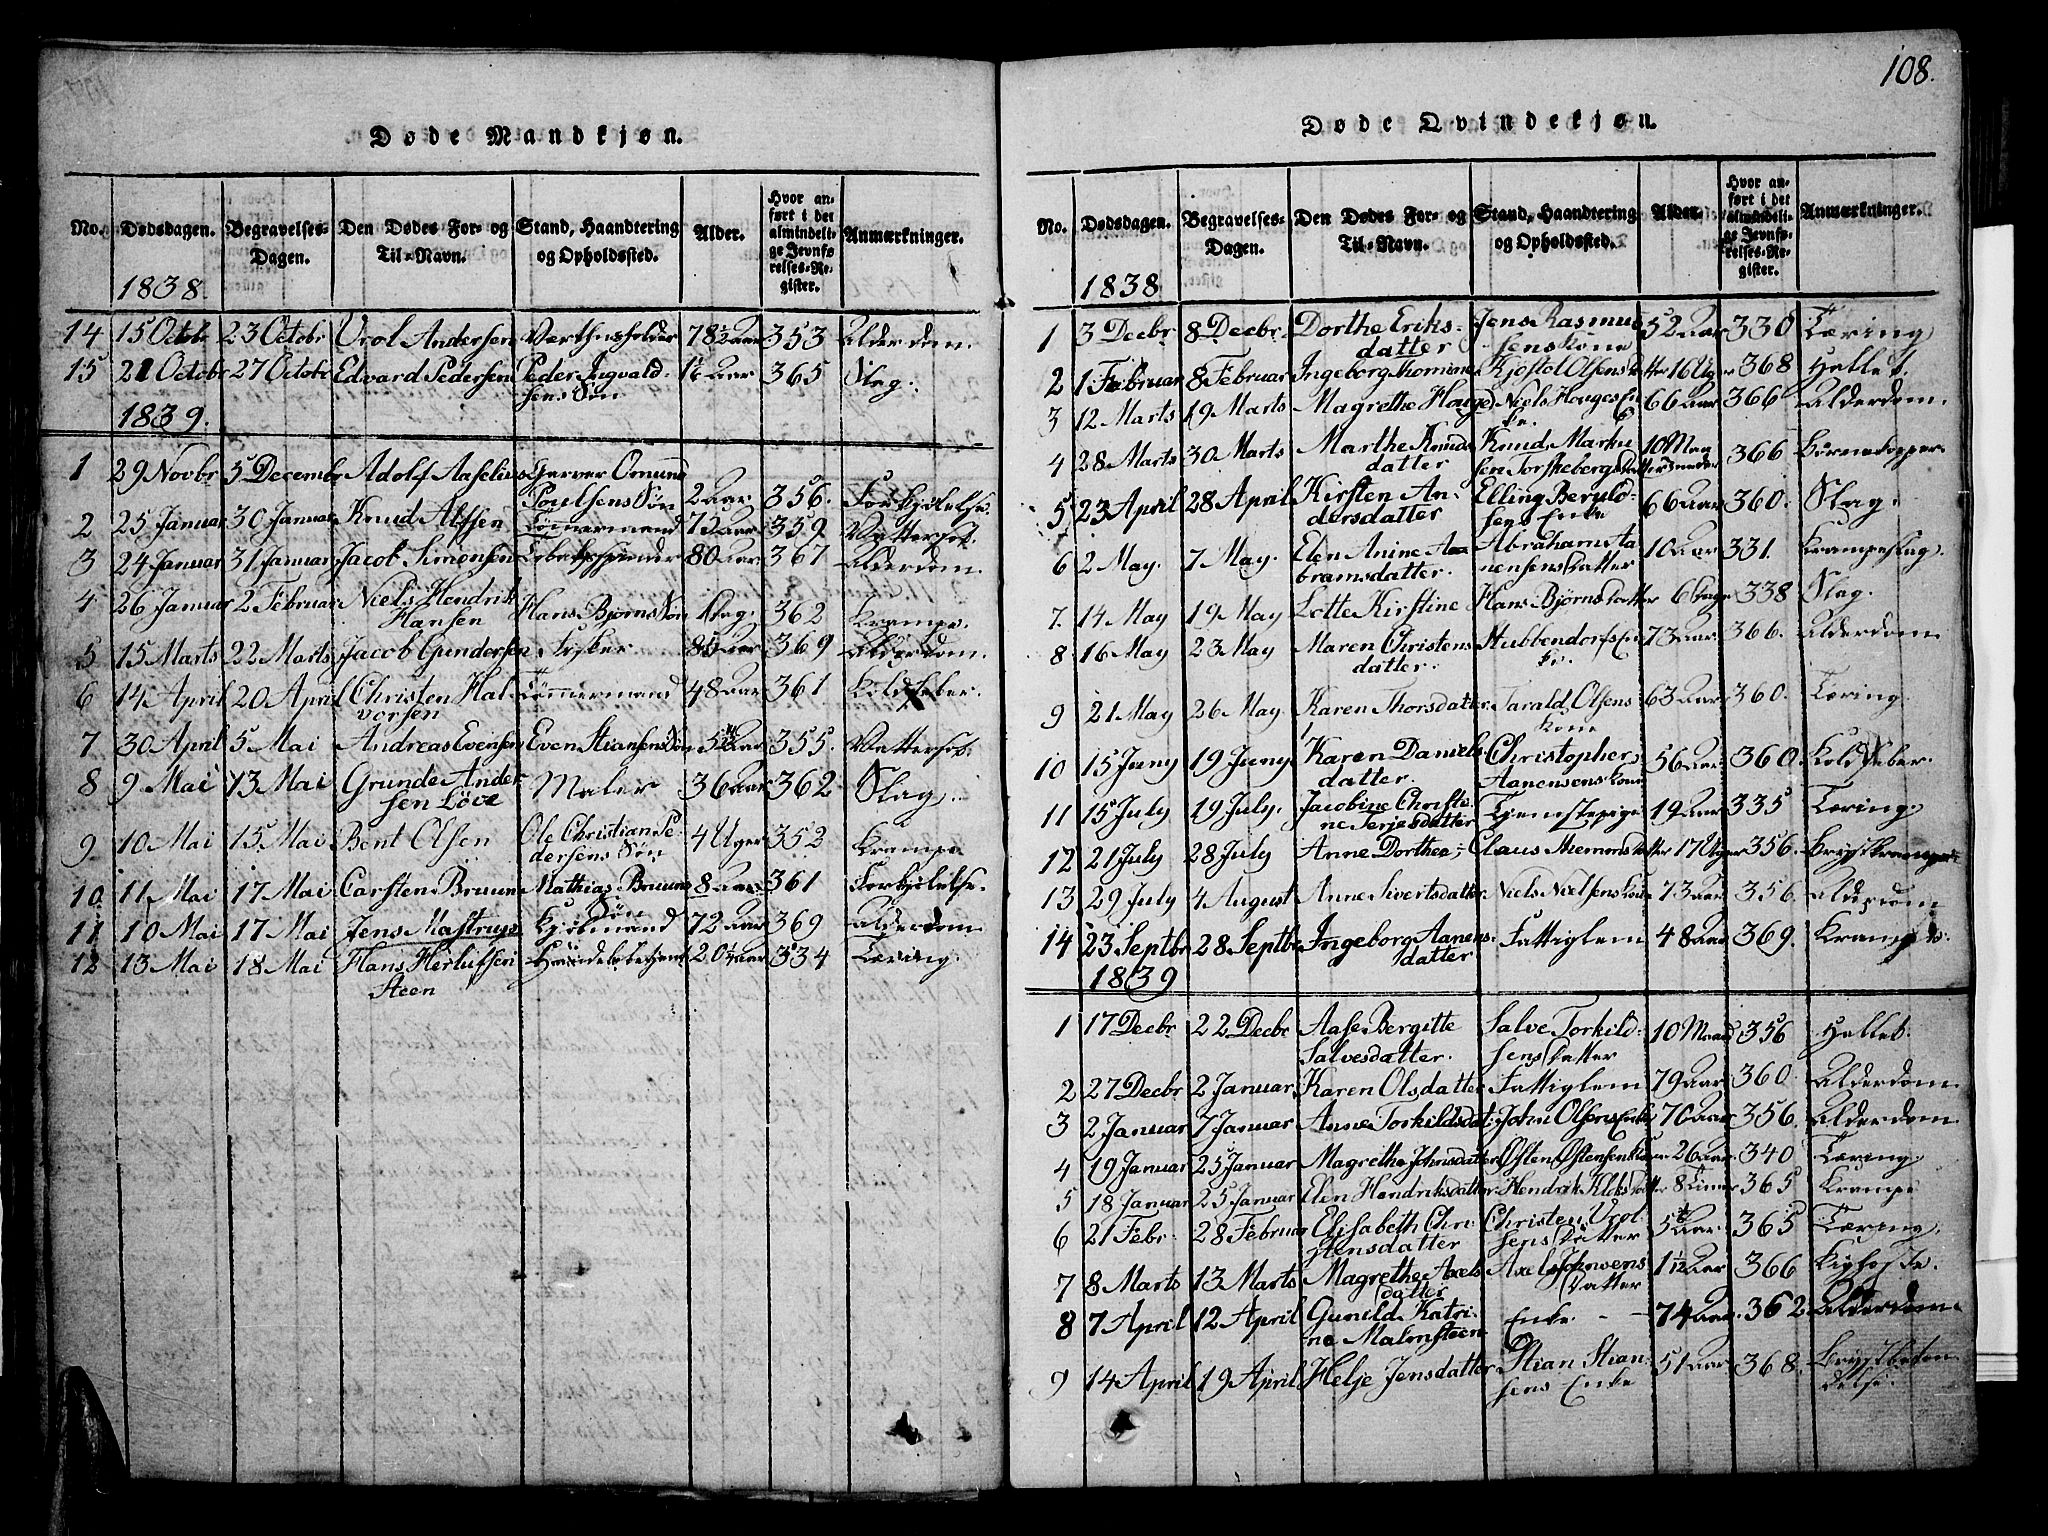 108.
Døde Mandkjøn.
No. Dødsdagen. Begravelses-Dagen. Den Dødes For- og Til-Navn. Stand, Haandtering og Opholdssted. Alder. Hvor anført i det almindelige Jevnførelses-Register. Anmærkninger.
1838.
14 15 Octobr 23 Octobr Vrol Andersen 78½ Aar 353 Alderdom.
15 21 Octobr 27 Octobr Edvard Pedersen Peder Ingvald-
sens Søn Aar 365 Slag.
1839.
1 29 Novbr 5 Decembr Adolf Aaselius Garver Omund
Poulsens Søn 2 Aar 356. Forkjølelse.
2 25 Januar 30 Januar Knud Alfsen Tømmermand 72 Aar 359 Vattersot.
3 24 Januar 31 Januar Jacob Simonsen Tobaksspinder 80 Aar 367 Alderdom.
4 26 Januar 2 Februar Niels Hendrik
Hansen Hans Bjørns Søn Dag. 362 Krampe.
5 15 Marts 22 Marts Jacob Gundersen Fisker 85 Aar 369 Alderdom.
6 14 April 20 April Christen Hal-
vorsen Tømmermand 48 Aar 361 Koldfeber.
7 30 April 5 Mai Andreas Evensen Even Stiansens Søn Aar 355. Vattersot.
8 9 Mai 13 Mai Grunde Ander-
sen Löve Maler 36 Aar 362 Slag.
9 10 Mai 15 Mai Bent Olsen Ole Christian Pe-
dersens Søn 4 Uger 352 Krampe
10 11 Mai 17 Mai Carsten Bruun Mathias Bruuns
Søn 8 Aar 361 Forkjølelse.
11 10 Mai 17 Mai Jens Mastrup Kjøbmand 72 Aar 369 Alderdom
12 13 Mai 18 Mai Hans Herlufsen
Steen Handelsbetjent 20¼ Aar 334 Tæring.
Døde Qvindekjøn.
No. Dødsdagen. Begravelses-Dagen. Den Dødes For- og Til-Navn. Stand, Haandtering og Opholdssted. Alder. Hvor anført i det almindelige Jevnførelses-Register. Anmærkninger.
1838
1 3 Decbr 8 Decbr Dorthe Eriks-
datter Jens Rasmus-
sens Kone 52 Aar 330 Tæring
2 1 Februar 8 Februar Ingeborg Kjøstol Olsens Datter 16 Uger 368 Hellet.
3 12 Marts 19 Marts Magrethe Houge Niels Houges En-
ke. 66 Aar 366 Alderdom.
4 28 Marts 30 Marts Marthe Knuds-
datter Knud Marku-
sen Torskebergs Datter 10 Maa-
neder 366 Børnekopper
5 23 April 28 April Kirsten An-
dersdatter Elling Beruld-
sens Enke 66 Aar 360. Slag.
6 2 May. 7 May. Elen Anine A-
bramsdatter. Abraham Aa-
nensens Datter 10 Aar 331. Krampeslag.
7. 14 May 19 May Lotte Kirstine Hans Bjørns Datter 6 Dage 338 Slag.
8 16 May 23 May Maren Christens
datter. Stubbendorfs En-
ke. 73 Aar. 366. Alderdom
9 21 May 26 May. Karen Thorsdatter Tarald Olsens
Kone 63 Aar 360. Tæring
10 15 Juny 19 Juny Karen Daniels-
datter. Christopher
Aanensens Kone 56 Aar 360. Koldfeber.
11 15 July 19 July. Jacobine Christi-
ne Terjesdatter Tjenstepige 19 Aar 335 Tæring.
12 21 July 28 July Anne Dorthea Claus Datter 17 Uger 356.
13 29 July 4 August Anne Sivertsdatter Niels Nielsens Kone 73 Aar 356. Alderdom
14 23 Septbr 28 Septbr Ingeborg Aanens-
datter Fattiglem 48 Aar 369. Krampe
1839
1 17 Decbr 22 Decbr Aase Bergitte
Salvesdatter. Salve Torkild-
sens Datter 10 Maand 356 Hellet.
2 27 Decbr 2 Januar Karen Olsdatter Fattiglem 79 Aar 360 Alderdom
3 2 Januar 7 Januar Anne Torkildsdat. John Olsens Enke 70 Aar 356. Alderdom
4 19 Januar 25 Januar Magrethe Johnsdatter Østen Østensens Kone 26 Aar 340 Tæring.
5 18 Januar 25 Januar Elen Hendriksdatter Hendrik Datter 8 Timer 365 Krampe
6 21 Febr. 28 Februar Elisabeth Chri-
stensdatter Christen Vrol-
sens Datter Aar 365 Tæring.
7 8 Marts 13 Marts Magrethe Axels
datter Axel Johnsens
Datter Aar 366 Kighoste.
8 7 April 12 April Gunild Katri-
ne Malmsteen Enke 74 Aar. 362 Alderdom
9 14 April 19 April Helje Jensdatter Stian Stian-
sens Enke 51 Aar 368. Brystbeten-
delse.